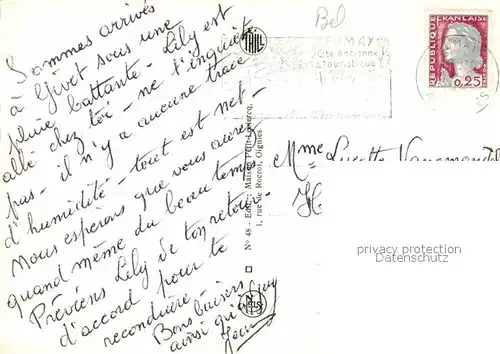 Sommes arrivés
à Givet sous une
pluie battante - Lily est
allé chez toi - ne t'inquiète
pas - il n'y a aucune trace
d'humidité - tout est net -
Nous espérons que vous aurez
quand même du beau temps.
Préviens Lily de ton retour -
d'accord pour te
reconduire -
Bons baisers
ainsi qu'à Guy
THILL
N° 48 - Edit.: Maison
1, rue de Rocroi, Oignies
NELS
Bel
FUMAY
Cité Ancienne
Touristique
REPUBLIQUE FRANÇAISE
0,25
Mme Lucette
privacy protection
Datenschutz